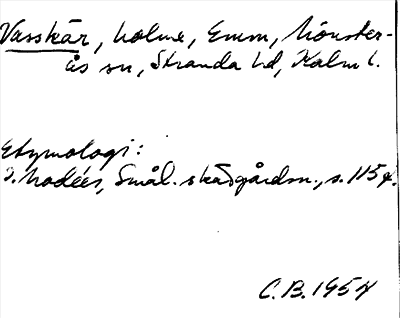 Vasskär, holme, Emm, Mönster-
ås sn, Stranda hd, Kalm l.
Etymologi:
I. Modéer, Smål. skärgårdsn., s. 115 f.
C.B. 1954